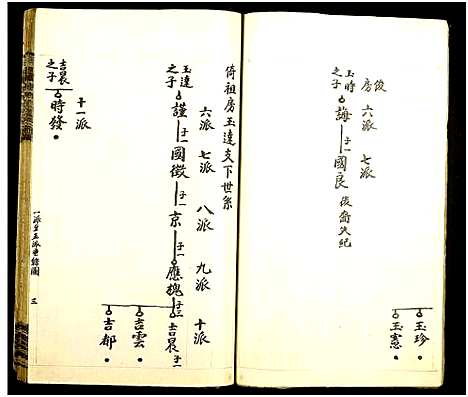 玉珍
玉憲
俊房
六派
七派
玉時之子
誨
子一
國良
後裔失紀
倚祖房玉達支下世系
六派
七派
八派
九派
十派
玉達之子
謹
子一
國徵
子一
京
子一
應槐
子三
吉晨
子一
吉雲
吉都
十一派
吉晨之子
時發
一派至五派垂絲圖
三